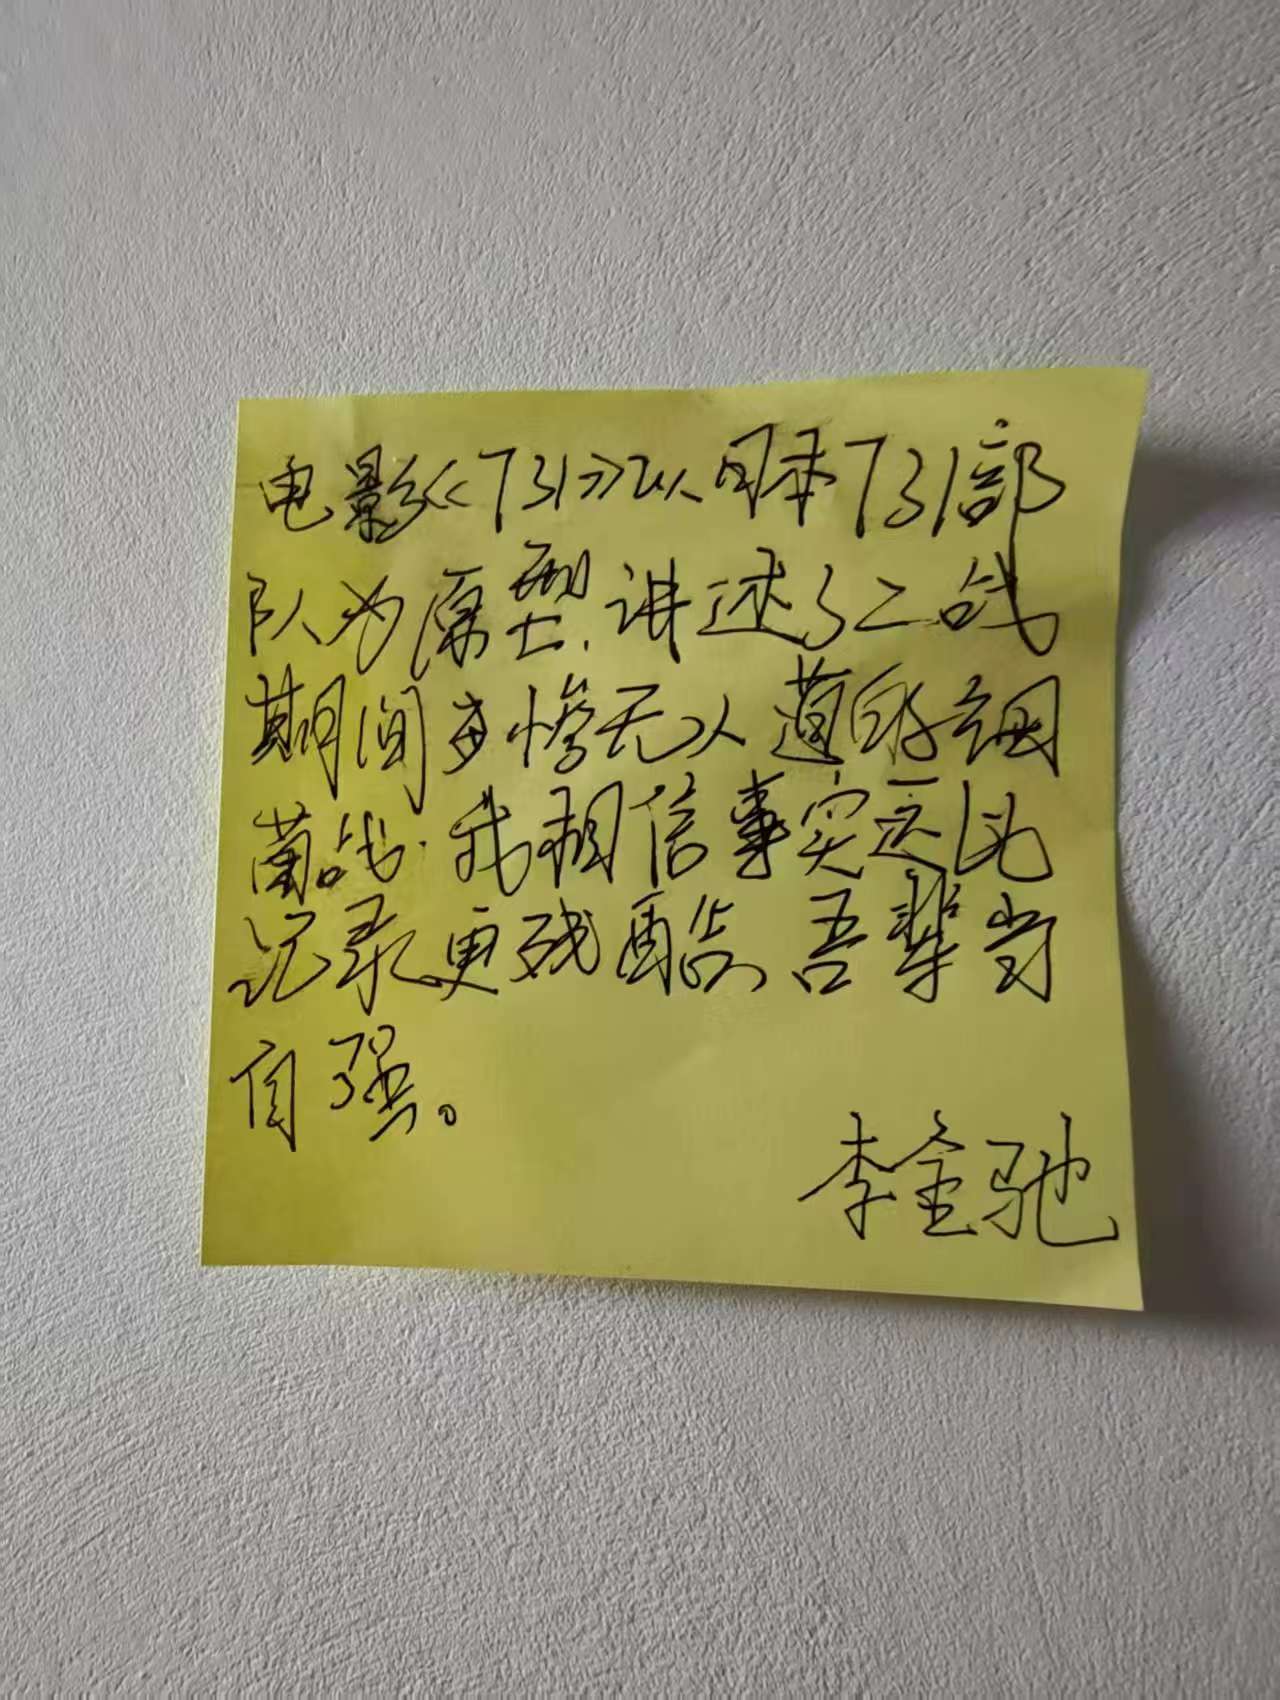 电影《731》以日本731部
队为原型,讲述了二战
期间惨无人道的细
菌战.我相信事实远比
记录更残酷,吾辈当
自强。
李金驰